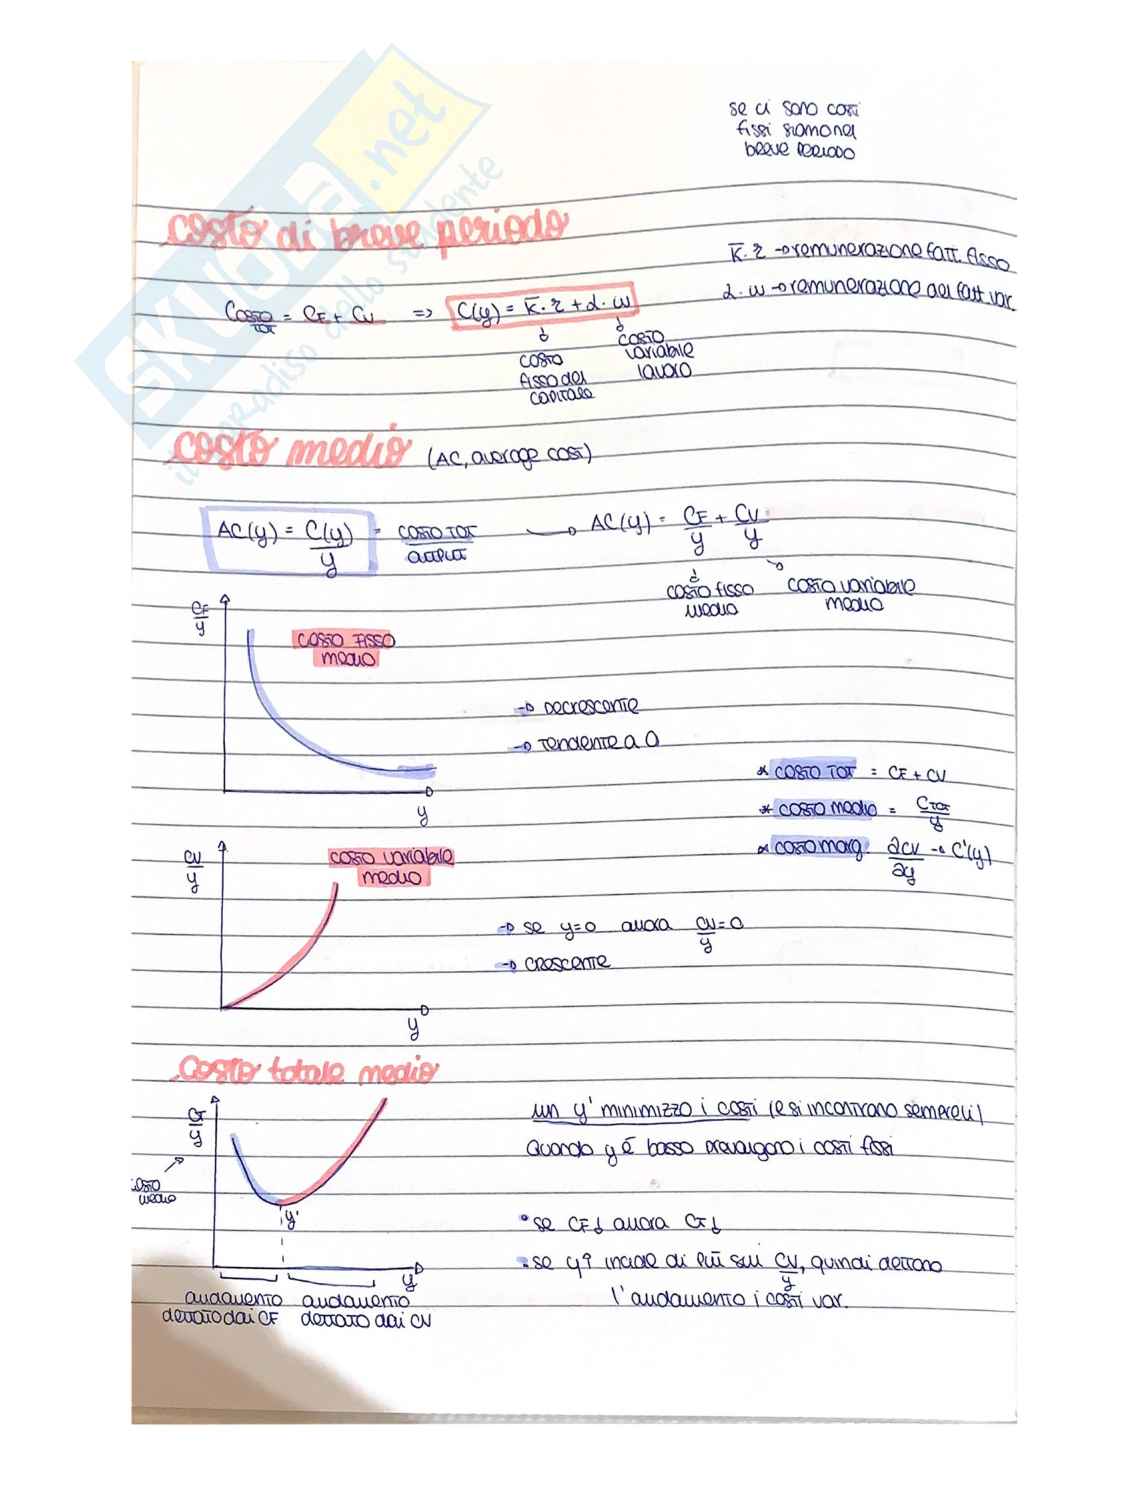 se ci sono costi
fissi siamo nel
breve periodo
costo di breve periodo
K̅·r → remunerazione fatt. fisso
L·w → remunerazione del fatt var.
Costo TOT = CF + CV => C(y) = K̅·r + L·w
costo
fisso del
capitale
costo
variabile
lavoro
costo medio (AC, average cost)
AC(y) = C(y)/y = costo TOT/output → AC(y) = CF/y + CV/y
costo fisso
medio
costo variabile
medio
CF/y
costo fisso
medio
→ Decrescente
→ Tendente a 0
y
* costo TOT = CF + CV
* costo medio = CTOT/y
* costo marg. ∂CV/∂y → C'(y)
CV/y
costo variabile
medio
→ se y=0 allora CV/y=0
→ crescente
y
Costo totale medio
CT/y
costo
medio
y'
y
andamento
dettato dai CF
andamento
dettato dai CV
un y' minimizzo i costi (e si incontrano sempre lì)
Quando y è basso prevalgono i costi fissi
• se CF↓ allora CT↓
• se y↑ incide di più sul CV/y, quindi dettano
l'andamento i costi var.
SKUOLA.net
il paradiso dello studente